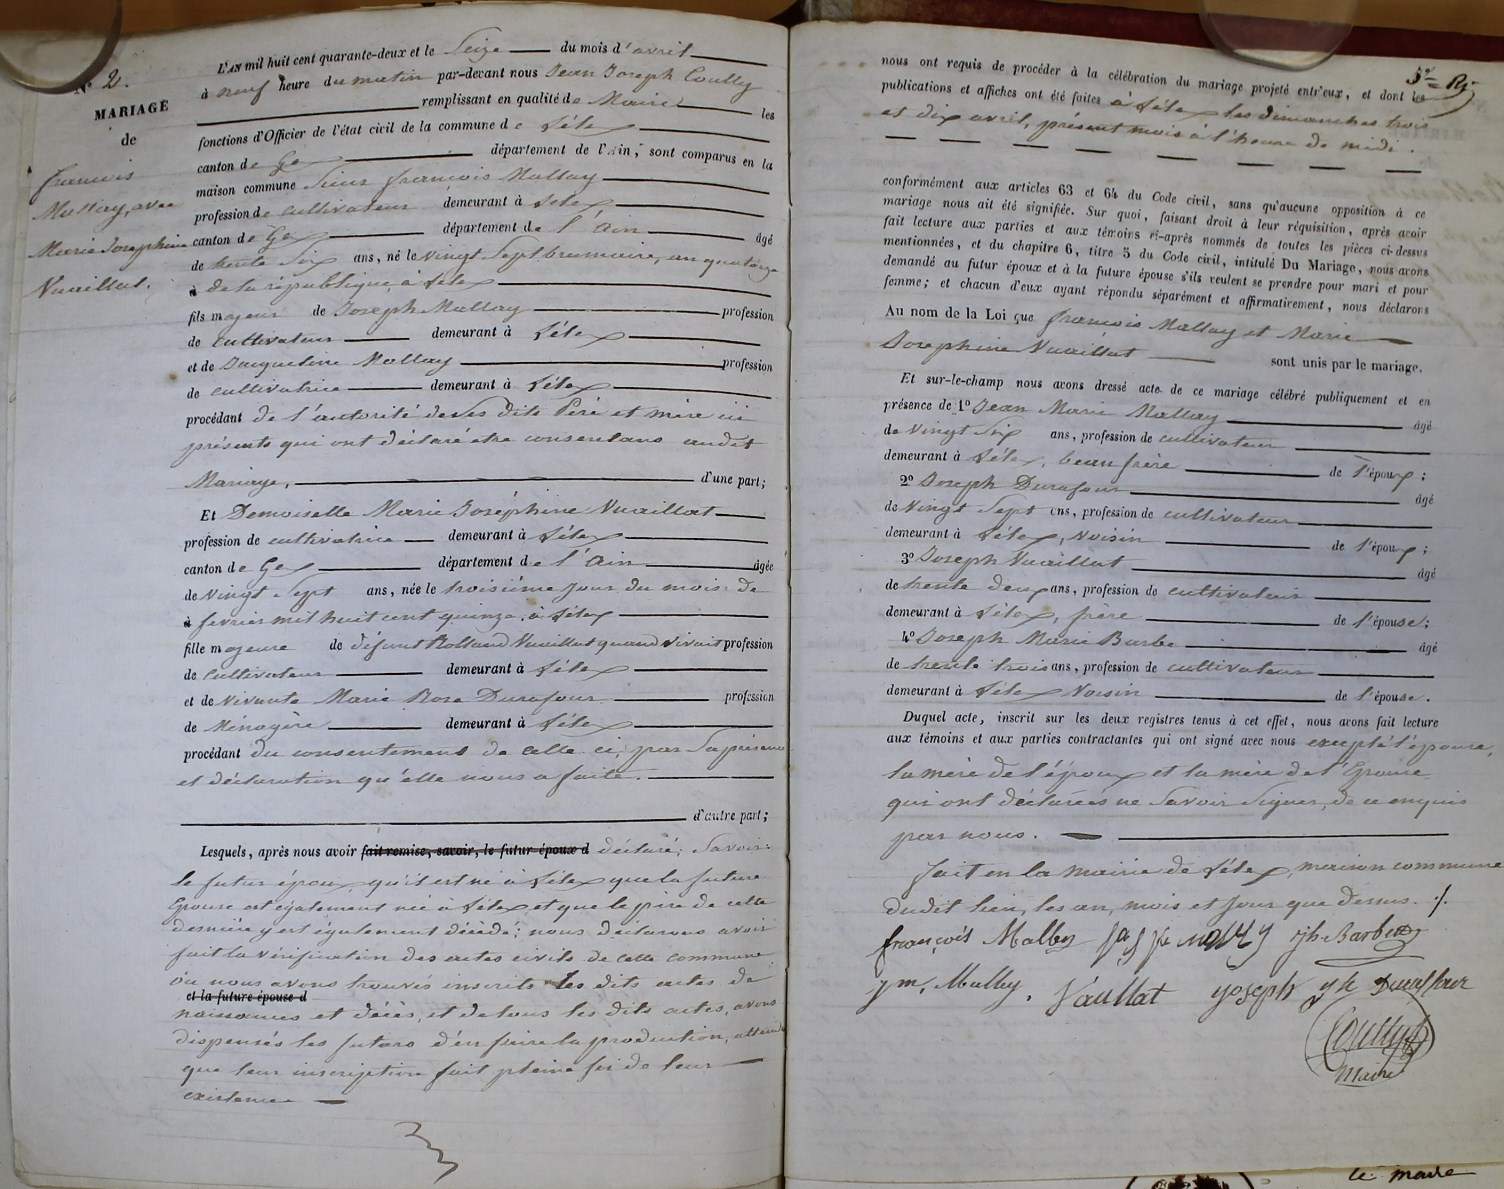 N° 2.
MARIAGE
de
françois
Mallay, avec
Marie Josephine
Vuaillat.
L'AN mil huit cent quarante-deux et le Seize du mois d'avril
à neuf heure du matin par-devant nous Jean Joseph Coutty
remplissant en qualité de Maire les
fonctions d'Officier de l'état civil de la commune de Lélex
canton de Gex département de l'Ain, sont comparus en la
maison commune Sieur françois Mallay
profession de cultivateur demeurant à Lélex
canton de Gex département de l'Ain âgé
de trente Six ans, né le vingt Sept brumaire, an quatorze
à de la république à Lélex
fils majeur de Joseph Mallay profession
de cultivateur demeurant à Lélex
et de Jacqueline Mallay profession
de cultivatrice demeurant à Lélex
procédant de l'autorité de ses dits Père et mère ici
présents qui ont déclaré être consentans audit
Mariage, d'une part;
Et Demoiselle Marie Joséphine Vuaillat
profession de cultivatrice demeurant à Lélex
canton de Gex département de l'Ain âgée
de vingt Sept ans, née le troisième jour du mois de
à fevrier mil huit cent quinze, à Lélex
fille majeure de défunt Rolland Vuaillat quand vivait profession
de cultivateur demeurant à Lélex
et de vivante Marie Rose Durafour profession
de Ménagère demeurant à Lélex
procédant du consentement de celle ci, par Sa présence
et déclaration qu'elle nous a faite.
d'autre part;
Lesquels, après nous avoir fait remise, savoir, le futur époux d déclaré; Savoir:
le futur époux qu'il est né à Lélex que la future
Epouse est également née à Lélex et que le père de cette
dernière y est également décédé; nous déclarons avoir
fait la vérification des actes civils de cette commune
où nous avons trouvés inscrits les dits actes de
et la future épouse d
naissances et décès, et de tous les dits actes, avons
dispensés les futurs d'en faire la production, attendu
que leur inscription fait pleine foi de leur
existence
5e Rj
nous ont requis de procéder à la célébration du mariage projeté entr'eux, et dont les
publications et affiches ont été faites à Lélex les dimanches trois
et dix avril, présent mois à l'heure de midi.
conformément aux articles 63 et 64 du Code civil, sans qu'aucune opposition à ce
mariage nous ait été signifiée. Sur quoi, faisant droit à leur réquisition, après avoir
fait lecture aux parties et aux témoins ci-après nommés de toutes les pièces ci-dessus
mentionnées, et du chapitre 6, titre 5 du Code civil, intitulé Du Mariage, nous avons
demandé au futur époux et à la future épouse s'ils veulent se prendre pour mari et pour
femme; et chacun d'eux ayant répondu séparément et affirmativement, nous déclarons
Au nom de la Loi que françois Mallay et Marie
Josephine Vuaillat sont unis par le mariage.
Et sur-le-champ nous avons dressé acte de ce mariage célébré publiquement et en
présence de 1° Jean Marie Mallay âgé
de vingt Six ans, profession de cultivateur
demeurant à Lélex, beau frère de l'époux;
2° Joseph Durafour âgé
de Vingt Sept ans, profession de cultivateur
demeurant à Lélex, voisin de l'époux;
3° Joseph Vuaillat âgé
de trente deux ans, profession de cultivateur
demeurant à Lélex, frère de l'épouse;
4° Joseph Marie Barbe âgé
de trente trois ans, profession de cultivateur
demeurant à Lélex voisin de l'épouse.
Duquel acte, inscrit sur les deux registres tenus à cet effet, nous avons fait lecture
aux témoins et aux parties contractantes qui ont signé avec nous excepté l'épouse,
la mère de l'époux et la mère de l'Epouse
qui ont déclarés ne Savoir Signer, de ce enquis
par nous.
fait en la mairie de Lélex, maison commune
dudit lieu, les an, mois et jour que dessus. /.
françois Mallay jh Barbe
jm. Mallay. Vaullat yoseph jh Duraffour
Coutty
Maire
le maire